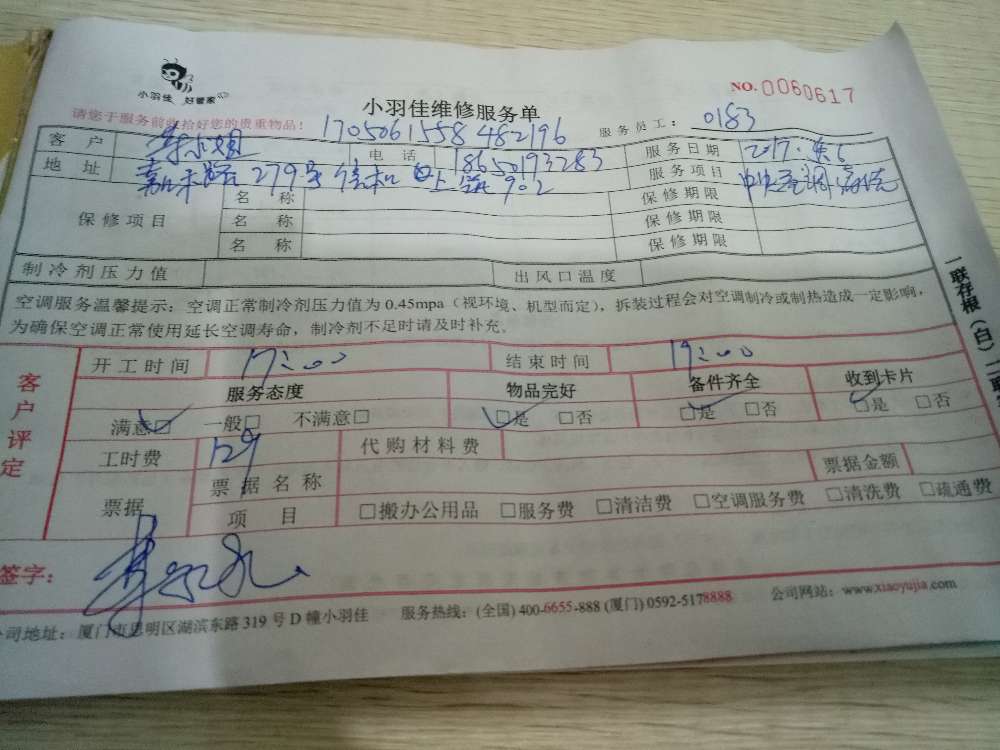 小羽佳 好管家
NO. 0060617
小羽佳维修服务单
请您于服务前收拾好您的贵重物品!
1705061558482196
服务员工: 0183
客户 小姐 电话 18650193283 服务日期 2017.
地址 279号 902 服务项目 中央空调清洗
保修项目 名称 保修期限
名称 保修期限
名称 保修期限
制冷剂压力值 出风口温度
空调服务温馨提示: 空调正常制冷剂压力值为0.45mpa(视环境、机型而定), 拆装过程会对空调制冷或制热造成一定影响,
为确保空调正常使用延长空调寿命, 制冷剂不足时请及时补充。
客户评定
开工时间 17:00 结束时间 19:00
服务态度 物品完好 备件齐全 收到卡片
满意□ 一般□ 不满意□ □是 □否 □是 □否 □是 □否
工时费 129 代购材料费
票据 票据名称 票据金额
项目 □搬办公用品 □服务费 □清洁费 □空调服务费 □清洗费 □疏通费
签字:
公司地址: 厦门市思明区湖滨东路319号D幢小羽佳 服务热线: (全国) 400-6655-888 (厦门) 0592-5178888 公司网站: www.xiaoyujia.com
一联存根(白) 二联